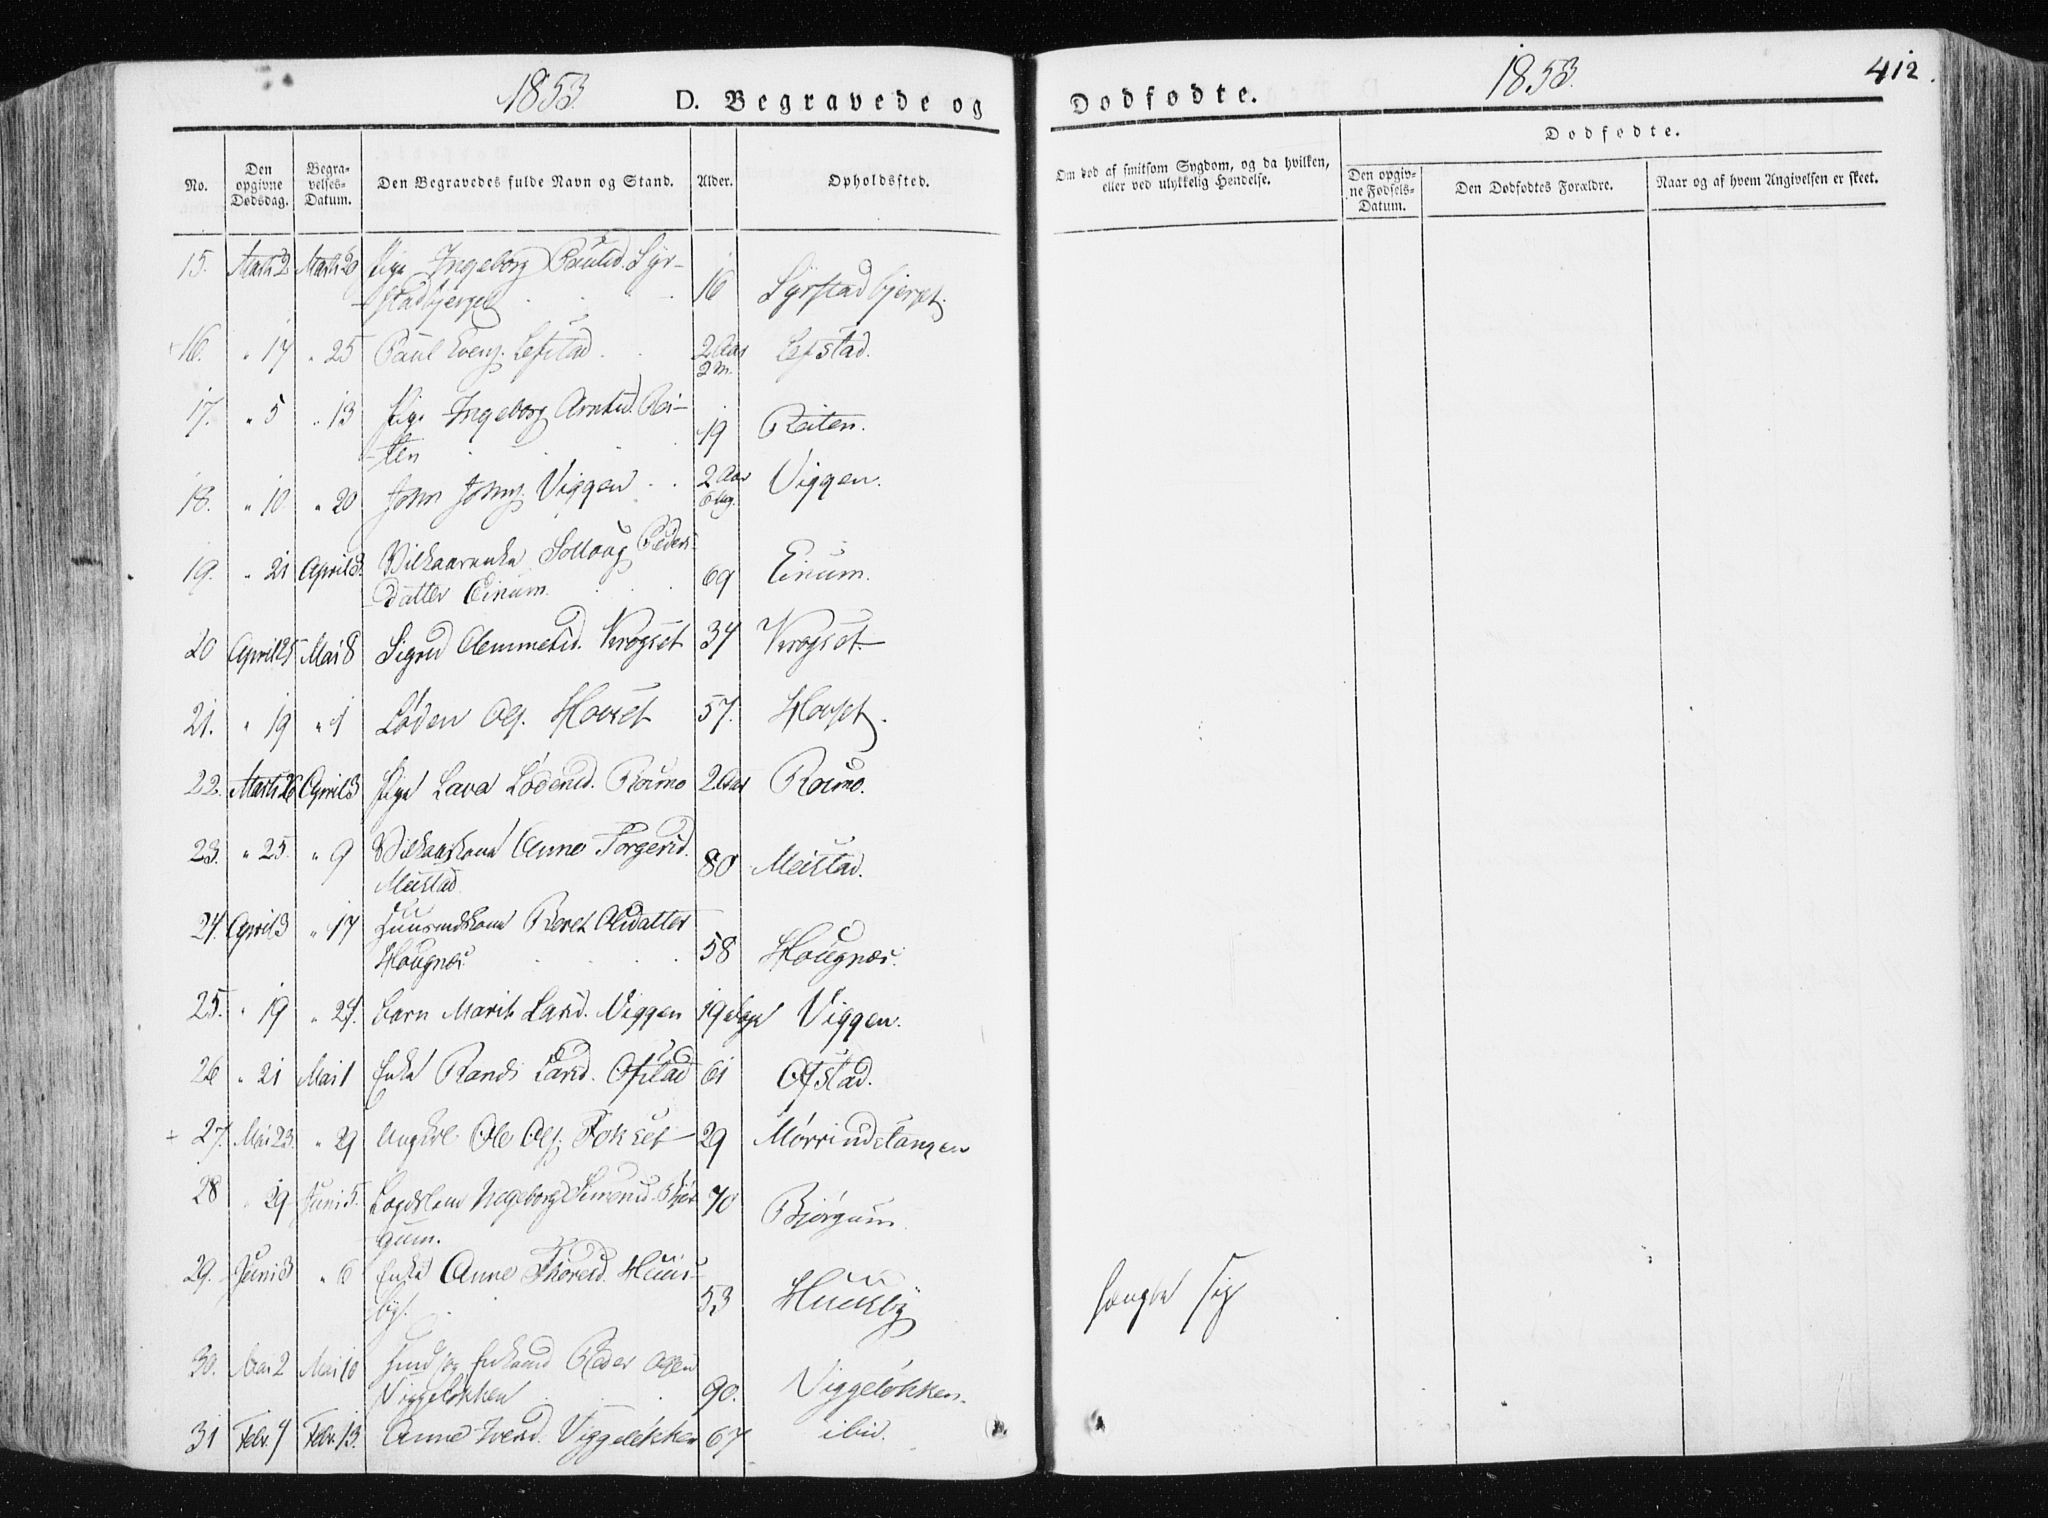 1853.
D. Begravede og
No.
Den opgivne Dødsdag.
Begravelses-Datum.
Den Begravedes fulde Navn og Stand.
Alder.
Opholdssted.
15. Marts 2 Marts 20 Pige Ingeborg Paulsd. Syr-
stadbjerget 16 Syrstadbjerget.
16. " 17 " 25 Paul Evens. Lefstad 2 Aar 2 M. Lefstad.
17. " 5 " 13 Pige Ingeborg Arntsd. Rei-
ten 19 Reiten.
18. " 10 " 20 John Johns. Viggen 2 Aar Viggen.
19. " 21 April 3. Vilkaarenke Sollaug Peders-
datter Einum 69 Einum.
20 April 25 Mai 8 Sigrid Clemmetsd. Krogset 34 Krogset
21. " 19 " 1 Loden Ols. Hovset 57. Hovset.
22. Marts 26 April 3 Pige Lava Lodensd. Roumo 2 Aar Roumo.
23. " 25. " 9 Vilkaarskone Anne Torgersd.
Meistad 80 Meistad.
24. April 3 " 17 Huusmdskone Beret Olsdatter
Hougnæs 58 Hougnæs.
25. " 19 " 24. Barn Marit Larsd. Viggen 19 Dage Viggen.
26 " 21 Mai 1 Enke Randi Larsd. Ofstad 61 Ofstad.
27. Mai 23. " 29 Ungkrl Ole Ols. Fokset 29 Mørrindstangen
28 " 29 Juni 5. Ingeborg Simensd. Bjør-
gum. 70 Bjørgum.
29. Juni 3 " 6 Enke Anne Thoresd. Huus-
bye. 53 Huusby
30. Mai 2 Mai 10 Enkemd Peder
Viggeløkken 90. Viggeløkken.
31 Febr. 4 Febr. 13. Anne Iversd. Viggeløkken 67 ibid.
1853.
412.
Dødfødte.
Om død af smitsom Sygdom, og da hvilken,
eller ved ulykkelig Hendelse.
Dødfødte.
Den opgivne Fødsels-Datum.
Den Dødfødtes Forældre.
Naar og af hvem Angivelsen er skeet.
hængte sig